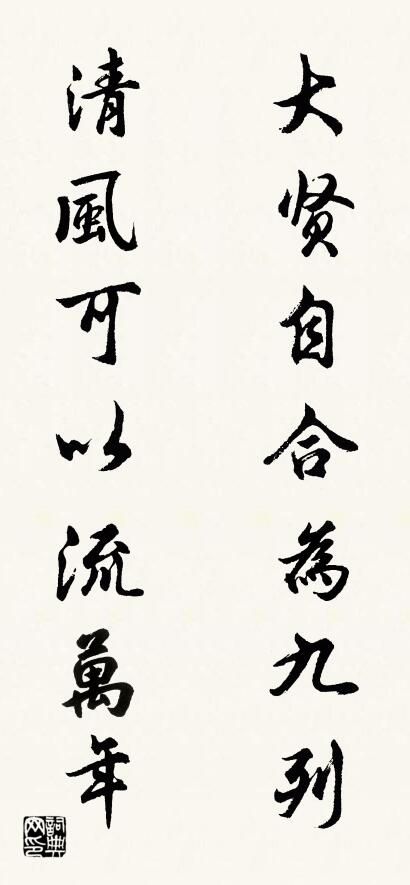 大贤自合為九列
清風可以流萬年
詞典网印